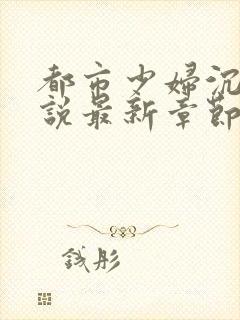 都市少婦沉
說最新章節
錢彤